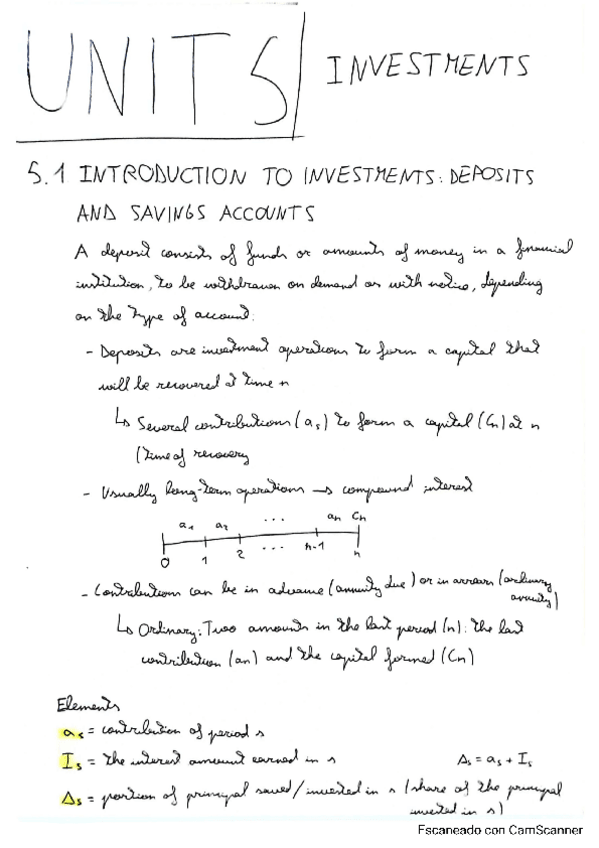 UNIT 5 INVESTMENTS
5.1 INTRODUCTION TO INVESTMENTS: DEPOSITS
AND SAVINGS ACCOUNTS
A deposit consists of funds or amounts of money in a financial
institution, to be withdrawn on demand or with notice, depending
on the type of account:
- Deposits are investment operations to form a capital that
will be recovered at time n
↳ Several contributions (as) to form a capital (Cn) at n
(time of recovery
- Usually long-term operations → compound interest
a1 a2 ... an Cn
0 1 2 ... n-1 n
- Contributions can be in advance (annuity due) or in arrears (ordinary
annuity)
↳ Ordinary: Two amounts in the last period (n): the last
contribution (an) and the capital formed (Cn)
Elements
as = contribution of period s
Is = the interest amount earned in s Δs = as + Is
Δs = portion of principal saved/invested in s (share of the principal
invested in s)
Escaneado con CamScanner